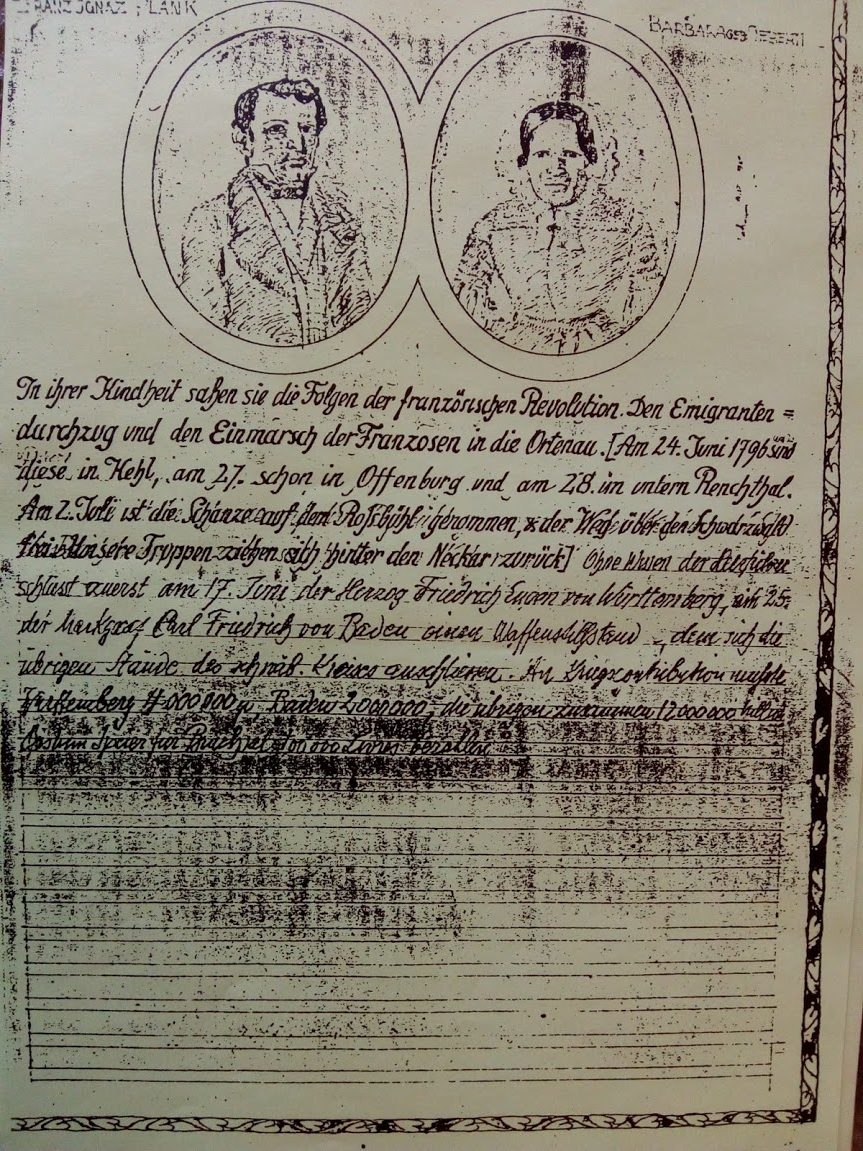 FRANZ IGNAZ
BARBARA geb
In ihrer Kindheit sahen sie die Folgen der französischen Revolution. Den Emigranten =
durchzug und den Einmarsch der Franzosen in die Ortenau. [Am 24. Juni 1796 sind
diese in Kehl, am 27. schon in Offenburg und am 28. im untern Renchthal.
Am 2. Juli ist die Schanze auf dem Roßbühl genommen, & der Weg über den Schwarzwald
frei. Unsere Truppen ziehen sich hinter den Neckar zurück] Ohne Wissen der
schliest zuerst am 17. Juni der Herzog Friedrich Eugen von Württemberg, am 25.
der Markgraf Carl Friedrich von Baden einen Waffenstillstand, dem sich die
übrigen Stände des schwäb. Kreises anschliesen. An Kriegscontribution musste
Württemberg 4 000 000 u. Baden 2 000 000, die übrigen zusammen 12 000 000
für 400 000 bezallen